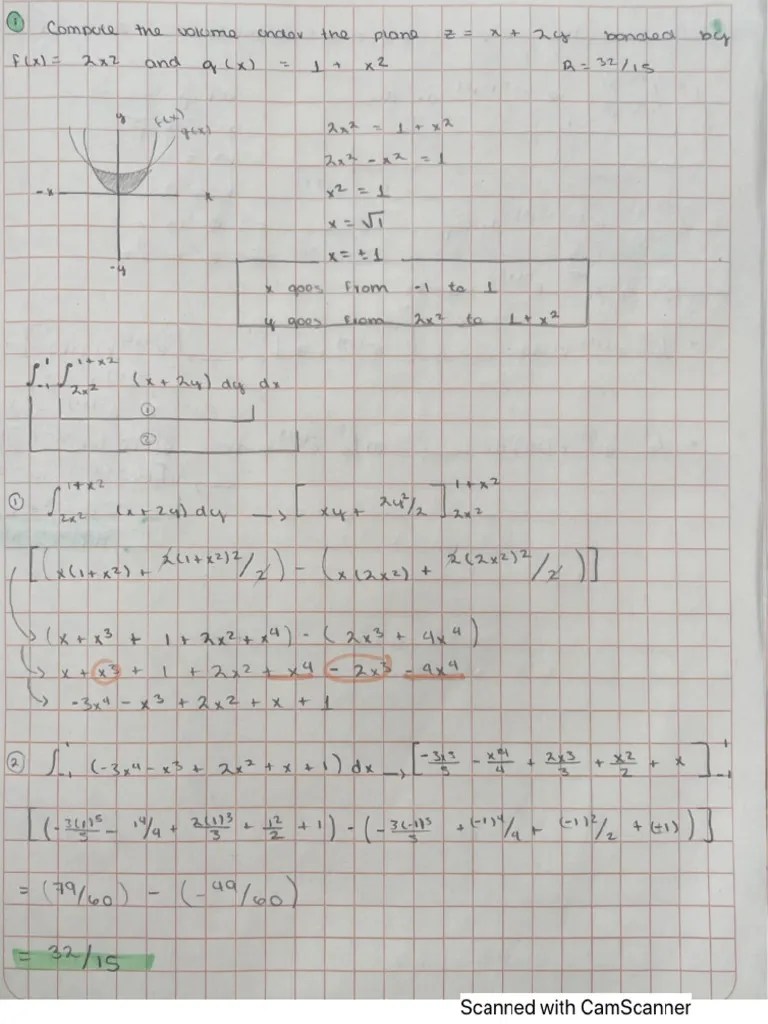 ① Compute the volume under the plane z = x + 2y bonded by
f(x) = 2x2 and g(x) = 1 + x2 R = 32/15
y f(x)
g(x)
-x x
-y
2x2 = 1 + x2
2x2 - x2 = 1
x2 = 1
x = √1
x = ± 1
x goes from -1 to 1
y goes from 2x2 to 1 + x2
∫-1^1 ∫2x2^1+x2 (x + 2y) dy dx
①
②
① ∫2x2^1+x2 (x + 2y) dy → [xy + 2y2/2]2x2^1+x2
[(x(1+x2) + 2(1+x2)2/2) - (x(2x2) + 2(2x2)2/2)]
(x + x3 + 1 + 2x2 + x4) - (2x3 + 4x4)
x + x3 + 1 + 2x2 + x4 - 2x3 - 4x4
-3x4 - x3 + 2x2 + x + 1
② ∫-1^1 (-3x4 - x3 + 2x2 + x + 1) dx → [-3x5/5 - x4/4 + 2x3/3 + x2/2 + x]-1^1
[(-3(1)5/5 - 14/4 + 2(1)3/3 + 12/2 + 1) - (-3(-1)5/5 + (-1)4/4 + (-1)2/2 + (-1))]
= (79/60) - (-49/60)
= 32/15
Scanned with CamScanner